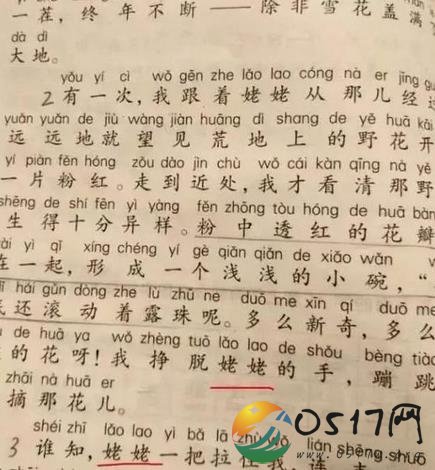 一茬，终年不断——除非雪花盖满
dà dì
大地。
yǒu yí cì wǒ gēn zhe lǎo lao cóng nà er jīng
2有一次，我跟着姥姥从那儿经
yuǎn yuǎn de jiù wàng jiàn huāng dì shang de yě huā kāi
远远地就望见荒地上的野花开
yí piàn fěn hóng zǒu dào jìn chù wǒ cái kàn qīng nà yě
一片粉红。走到近处，我才看清那野
shēng de shí fēn yì yàng fěn zhōng tòu hóng de huā bàn
生得十分异样。粉中透红的花瓣
yì qǐ xíng chéng yí gè qiǎn qiǎn de xiǎo wǎn
在一起，形成一个浅浅的小碗，“
hái gǔn dòng zhe lù zhū ne duō me xīn qí duō me
还滚动着露珠呢。多么新奇，多么
de huā ya wǒ zhèng tuō lǎo lao de shǒu bèng tiào
的花呀！我挣脱姥姥的手，蹦跳
zhāi nà huā er
摘那花儿。
shéi zhī lǎo lao yì bǎ lā zhù wǒ lián shēng shuō
3 谁知，姥姥一把拉住我，连声
0517网